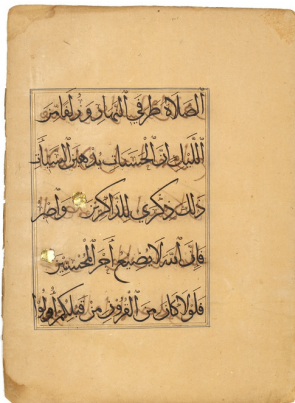 الصلاة طرفي النهار وزلفا من
الليل ان الحسنات يذهبن السيئات
ذلك ذكرى للذاكرين واصبر
فان الله لا يضيع اجر المحسنين
فلولا كان من القرون من قبلكم اولوا